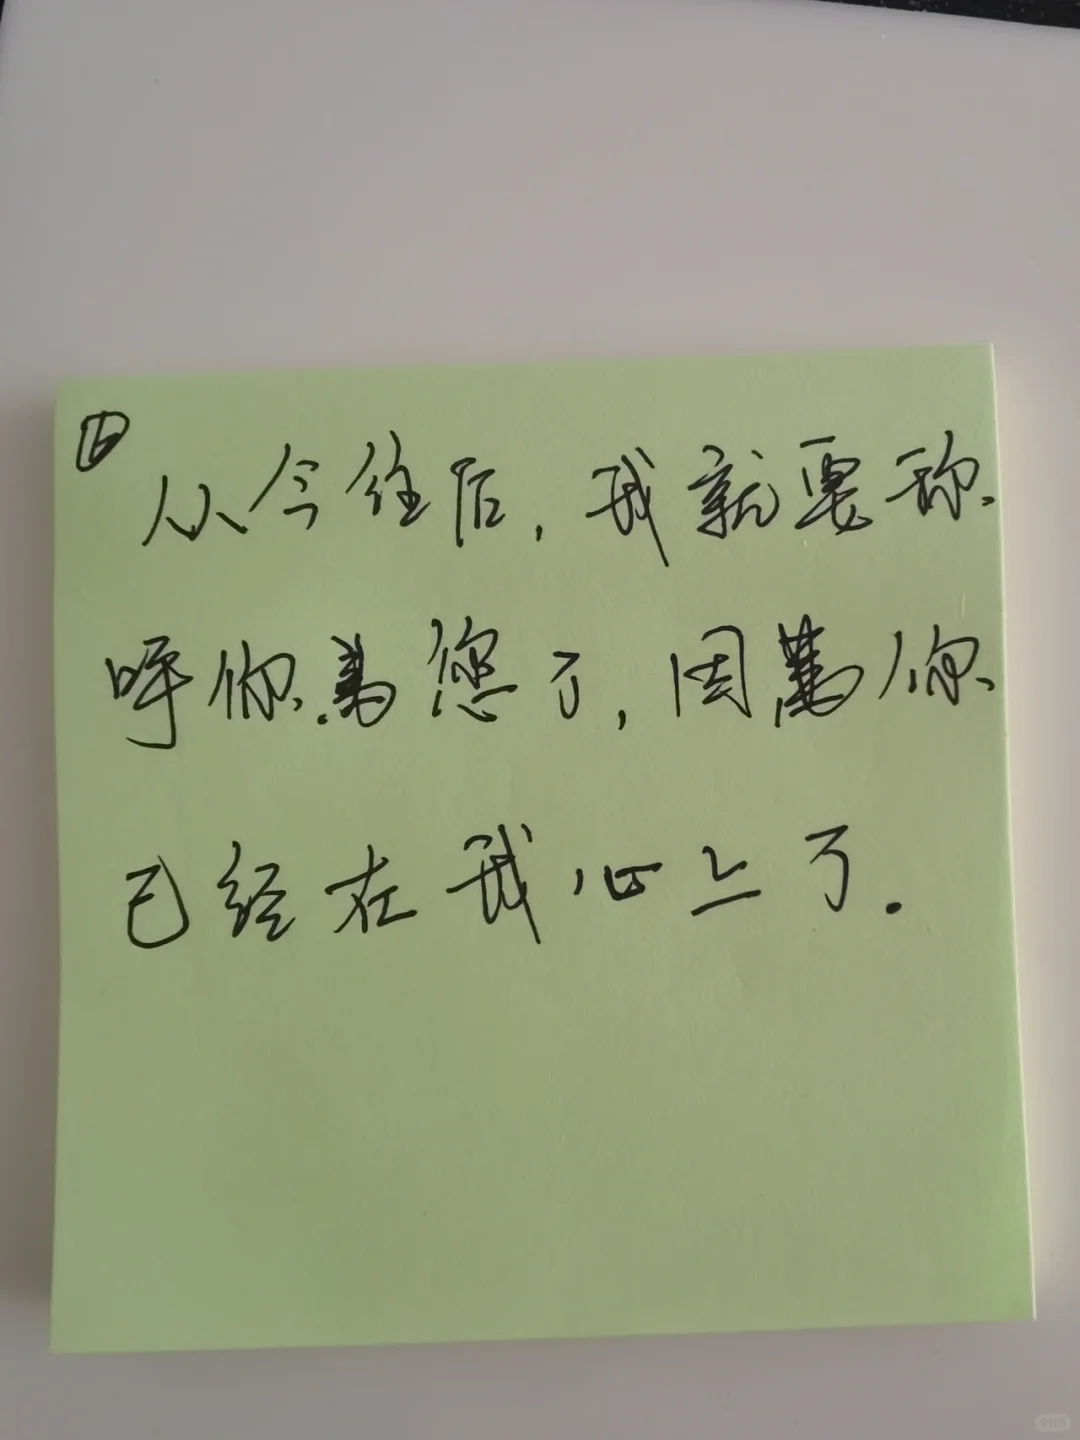 ⑥
从今往后,我就要称
呼你為您了,因為你
已经在我心上了.